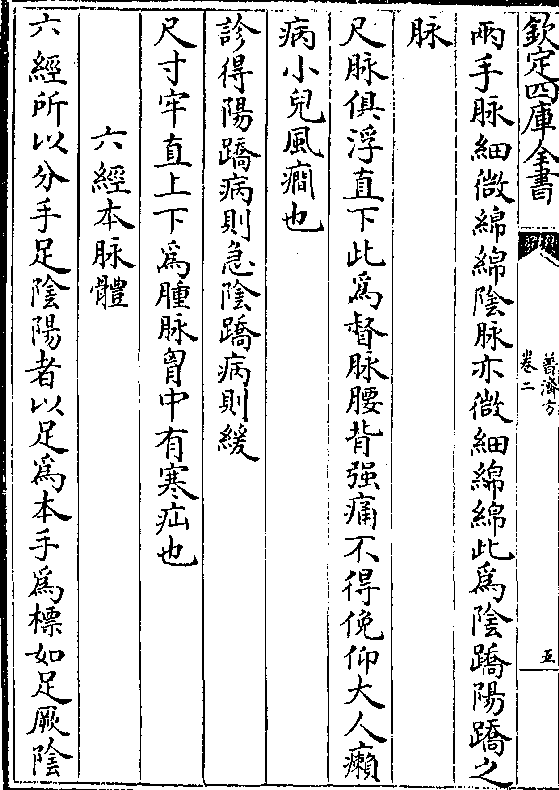 欽定四庫全書
普濟方
卷二
五
兩手脉細微綿綿陰脉亦微細綿綿此為陰蹻陽蹻之
脉
尺脉俱浮直下此為督脉腰背强痛不得俛仰大人癲
病小兒風癎也
診得陽蹻病則急陰蹻病則緩
尺寸牢直上下為腫脉胷中有寒疝也
六經本脉體
六經所以分手足陰陽者以足為本手為標如足厥陰